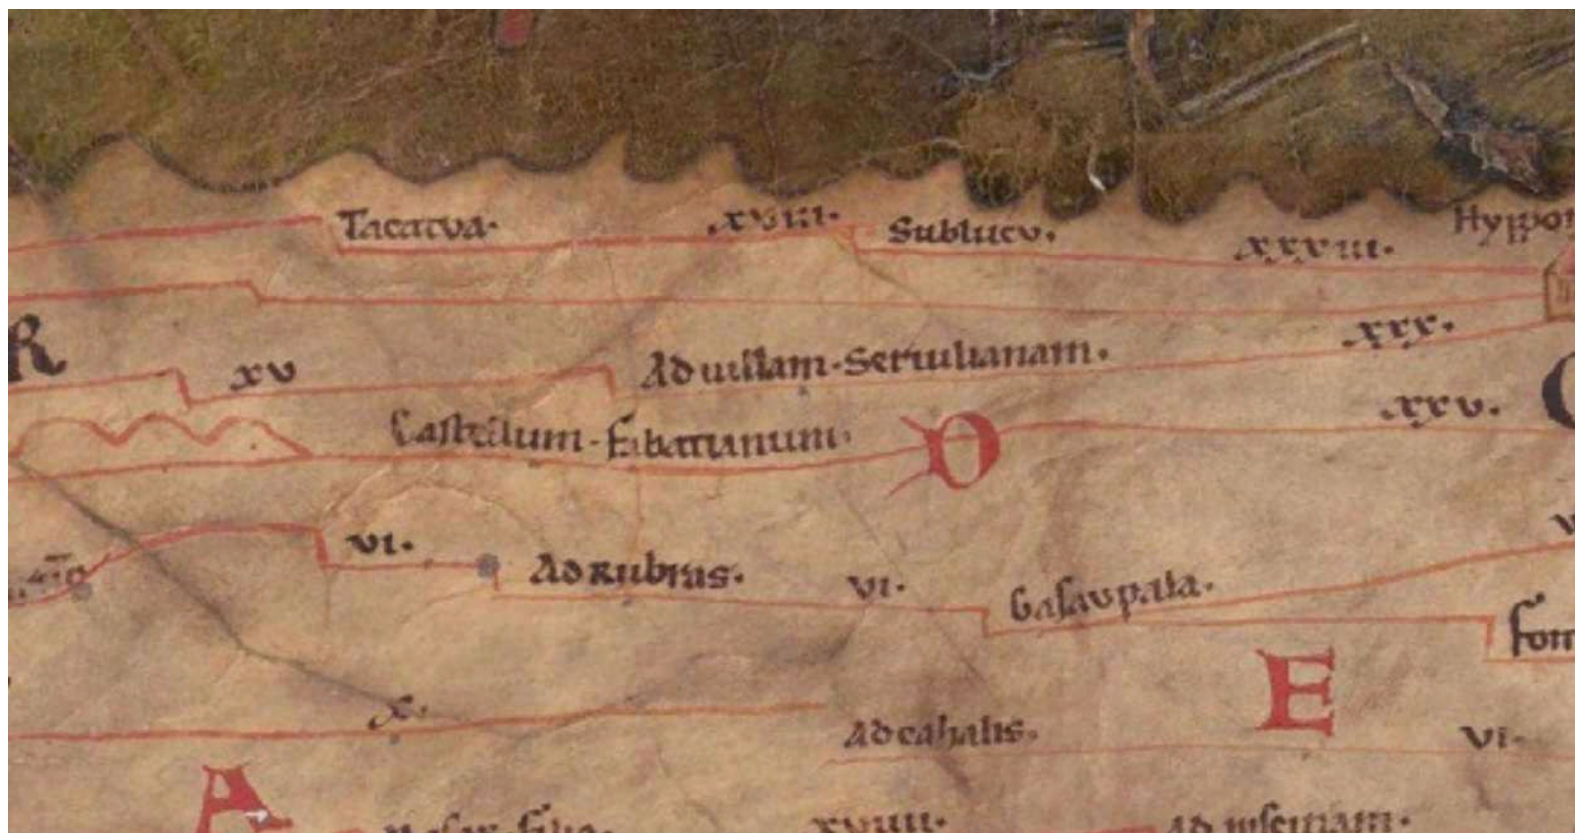 Tacatva. xviii. Sublucu. xxxiii. Hyppon
R xv Ad uillam. Seruilianam. xxx.
Castellum. fabatianum. O xxv.
vi. Ad Rubras. vi. Gasaupala. fon
x. Ad cahalis. E vi.
A xviiii.